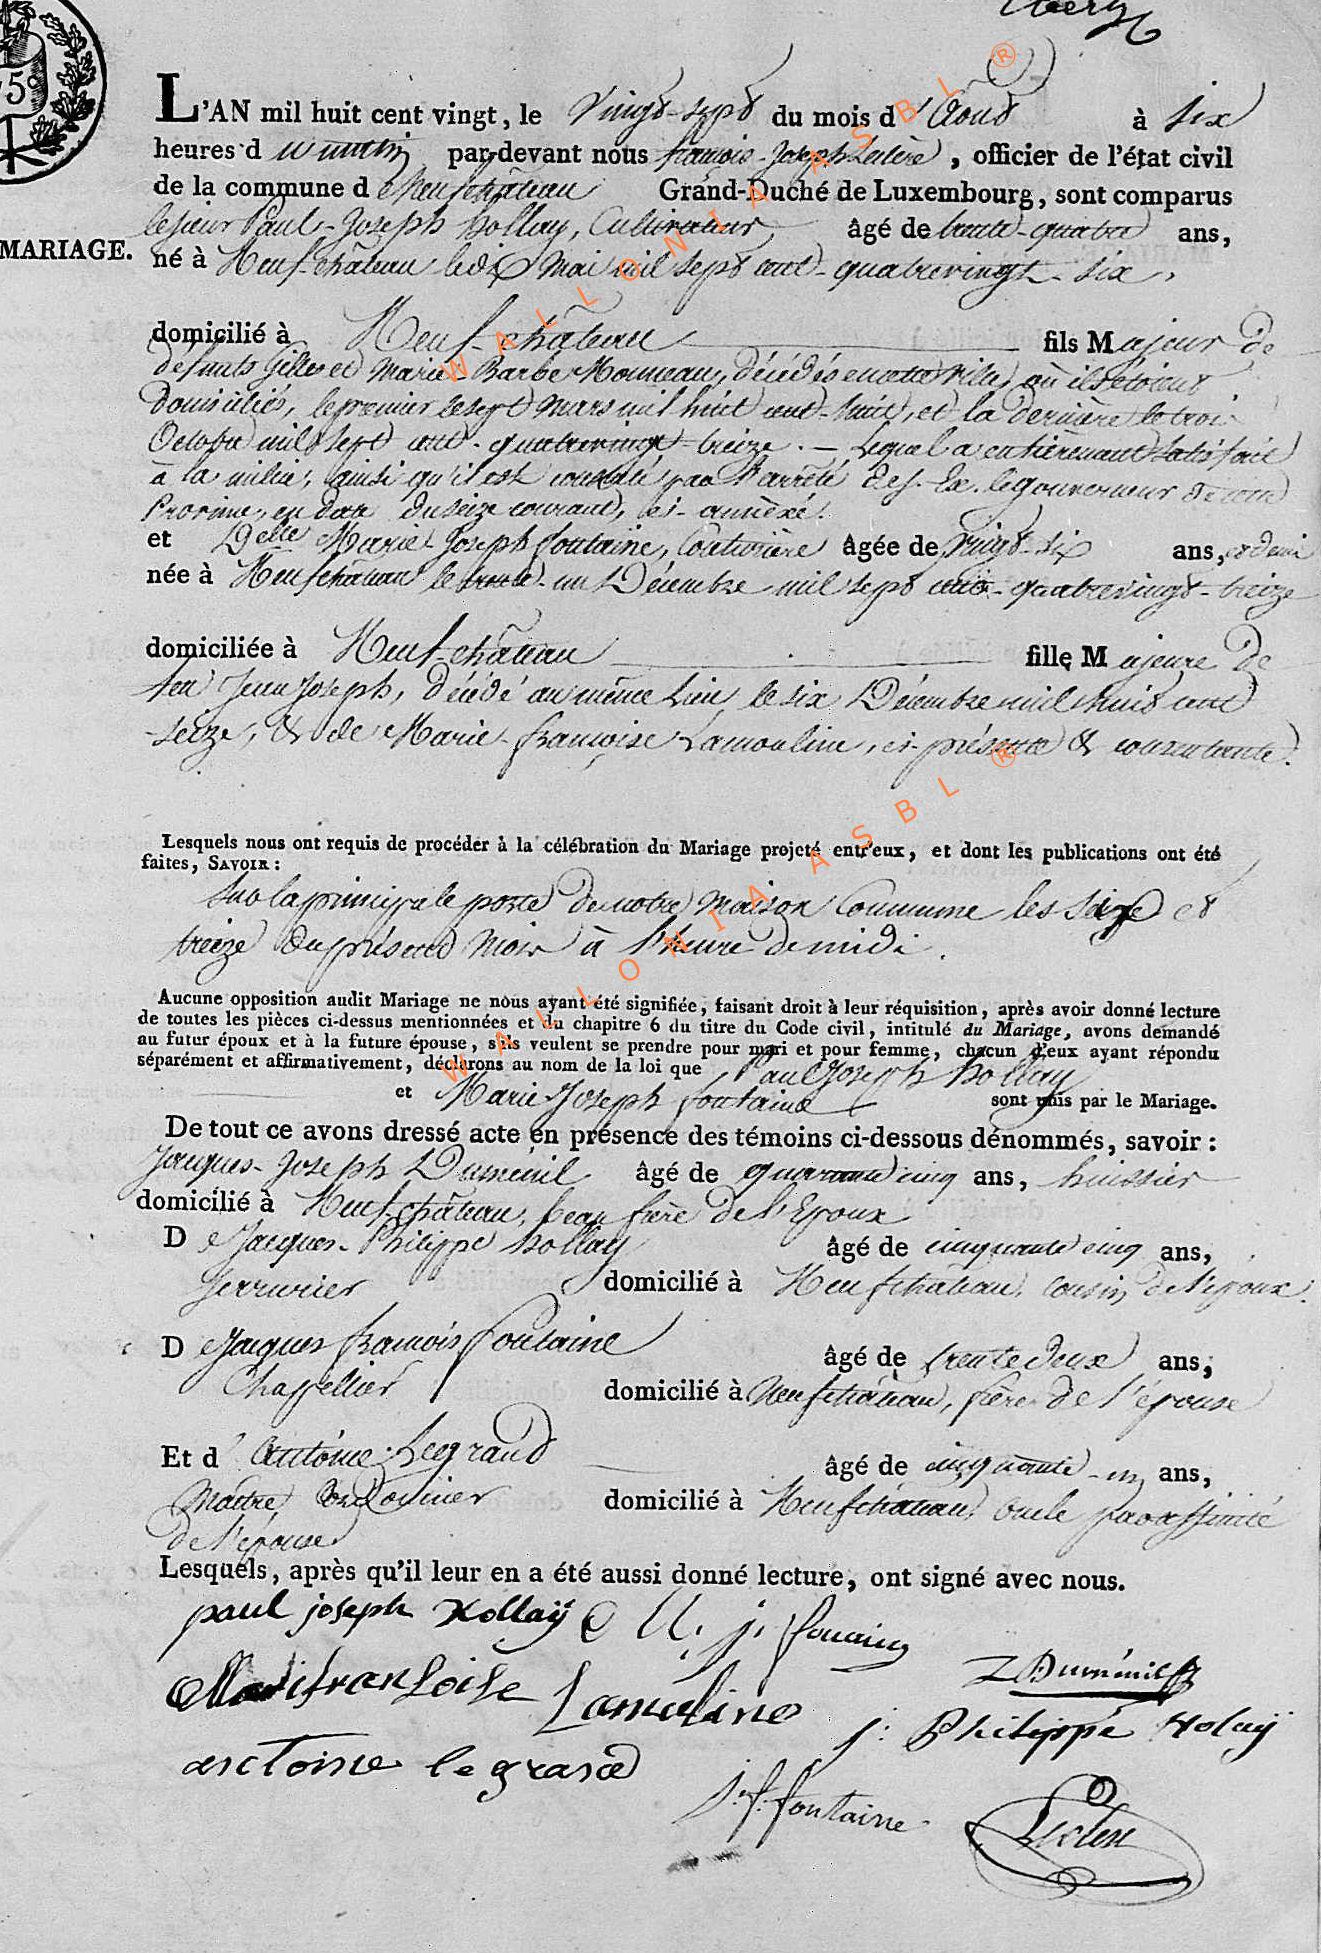 75c
L'AN mil huit cent vingt, le Vingt-sept du mois d'Aout à six
heures d u matin par-devant nous françois-Joseph Leclère, officier de l'état civil
de la commune d e Neufchâteau Grand-Duché de Luxembourg, sont comparus
le sieur Paul-Joseph hollay, Cultivateur âgé de trente-quatre ans,
MARIAGE.
né à Neuf-château le dix mai mil sept cent-quatrevingt-six,
domicilié à Neuf-château fils M ajeur de
défunts Gilles et Marie-Barbe Monneau, décédés en cette ville, où ils étoient
Domiciliés, le premier le sept Mars mil huit cent-huit, et la dernière le trois
Octobre mil sept cent-quatrevingt-treize. — Lequel a entièrement satisfait
à la milice, ainsi qu'il est constaté par l'arrêté de S. Ex. le gouverneur de cette
Province, en date du seize courant, ci-annéxé.
et Delle Marie-Joseph fontaine, Couturière âgée de vingt-six ans, et demi
née à Neufchâteau le trente-un Décembre mil sept cent-quatrevingt-treize
domiciliée à Neuf-château fille M ajeure de
feu Jean Joseph, décédé au même lieu, le six Décembre mil huit cent
seize, & de Marie-françoise Lamouline, ci-présente & consentante.
Lesquels nous ont requis de procéder à la célébration du Mariage projeté entr'eux, et dont les publications ont été
faites, SAVOIR :
Sur la principale porte de notre Maison Commune les six et
treize du présent Mois à l'heure de midi.
Aucune opposition audit Mariage ne nous ayant été signifiée, faisant droit à leur réquisition, après avoir donné lecture
de toutes les pièces ci-dessus mentionnées et du chapitre 6 du titre du Code civil, intitulé du Mariage, avons demandé
au futur époux et à la future épouse, s'ils veulent se prendre pour mari et pour femme, chacun d'eux ayant répondu
séparément et affirmativement, déclarons au nom de la loi que Paul Joseph hollay
et Marie-Joseph fontaine sont unis par le Mariage.
De tout ce avons dressé acte en présence des témoins ci-dessous dénommés, savoir :
Jacques-Joseph Duménil âgé de quarante cinq ans, huissier
domicilié à Neufchâteau, beau frère de l'Epoux
D e Jacques-Philippe hollay âgé de cinquante cinq ans,
Serrurier domicilié à Neufchâteau, cousin de l'époux.
D e Jacques françois fontaine âgé de trente deux ans,
Chapellier domicilié à Neufchâteau, frère de l'épouse
Et d' Antoine Legrand âgé de cinquante-un ans,
Maître Cordonnier domicilié à Neufchâteau, oncle par affinité
de l'épouse
Lesquels, après qu'il leur en a été aussi donné lecture, ont signé avec nous.
paul joseph Hollaÿ M. j. fontaine
Duménil
Marifransoise Lamuline
j. Philippe Holaÿ
anctoine le grand
j. f. fontaine
Leclere
WALLONIA ASBL ®
WALLONIA ASBL ®